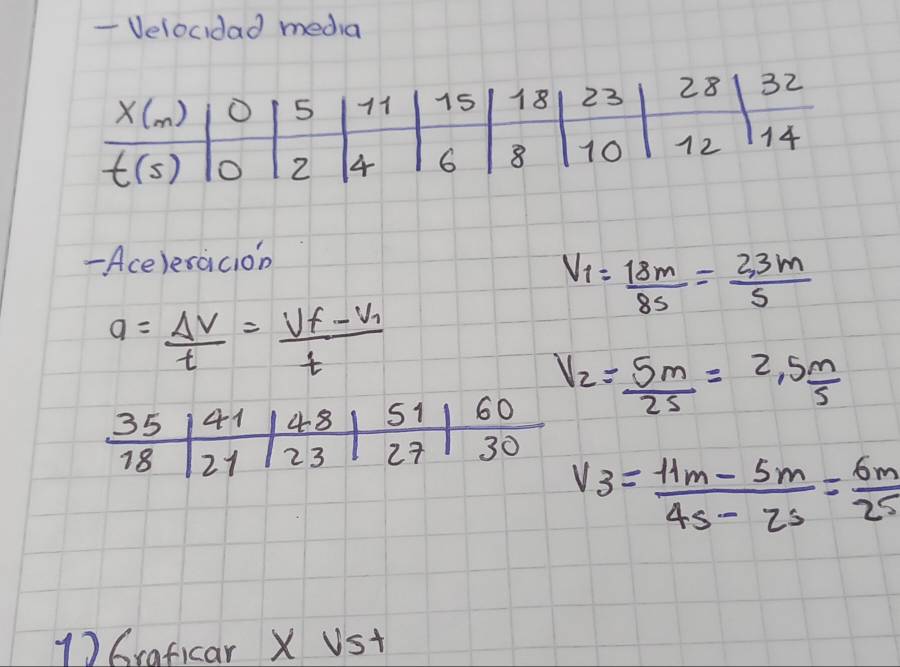 - Velocidad media
x(m) | 0 | 5 | 11 | 15 | 18 | 23 | 28 | 32
t(s) | 0 | 2 | 4 | 6 | 8 | 10 | 12 | 14
- Aceleración
a = ΔV/t = Vf - V1/t
35 | 41 | 48 | 51 | 60
18 | 21 | 23 | 27 | 30
V1 = 18m/8s = 2,3m/s
V2 = 5m/2s = 2,5 m/s
V3 = 11m - 5m/4s - 2s = 6m/2s
1) Graficar X Vst